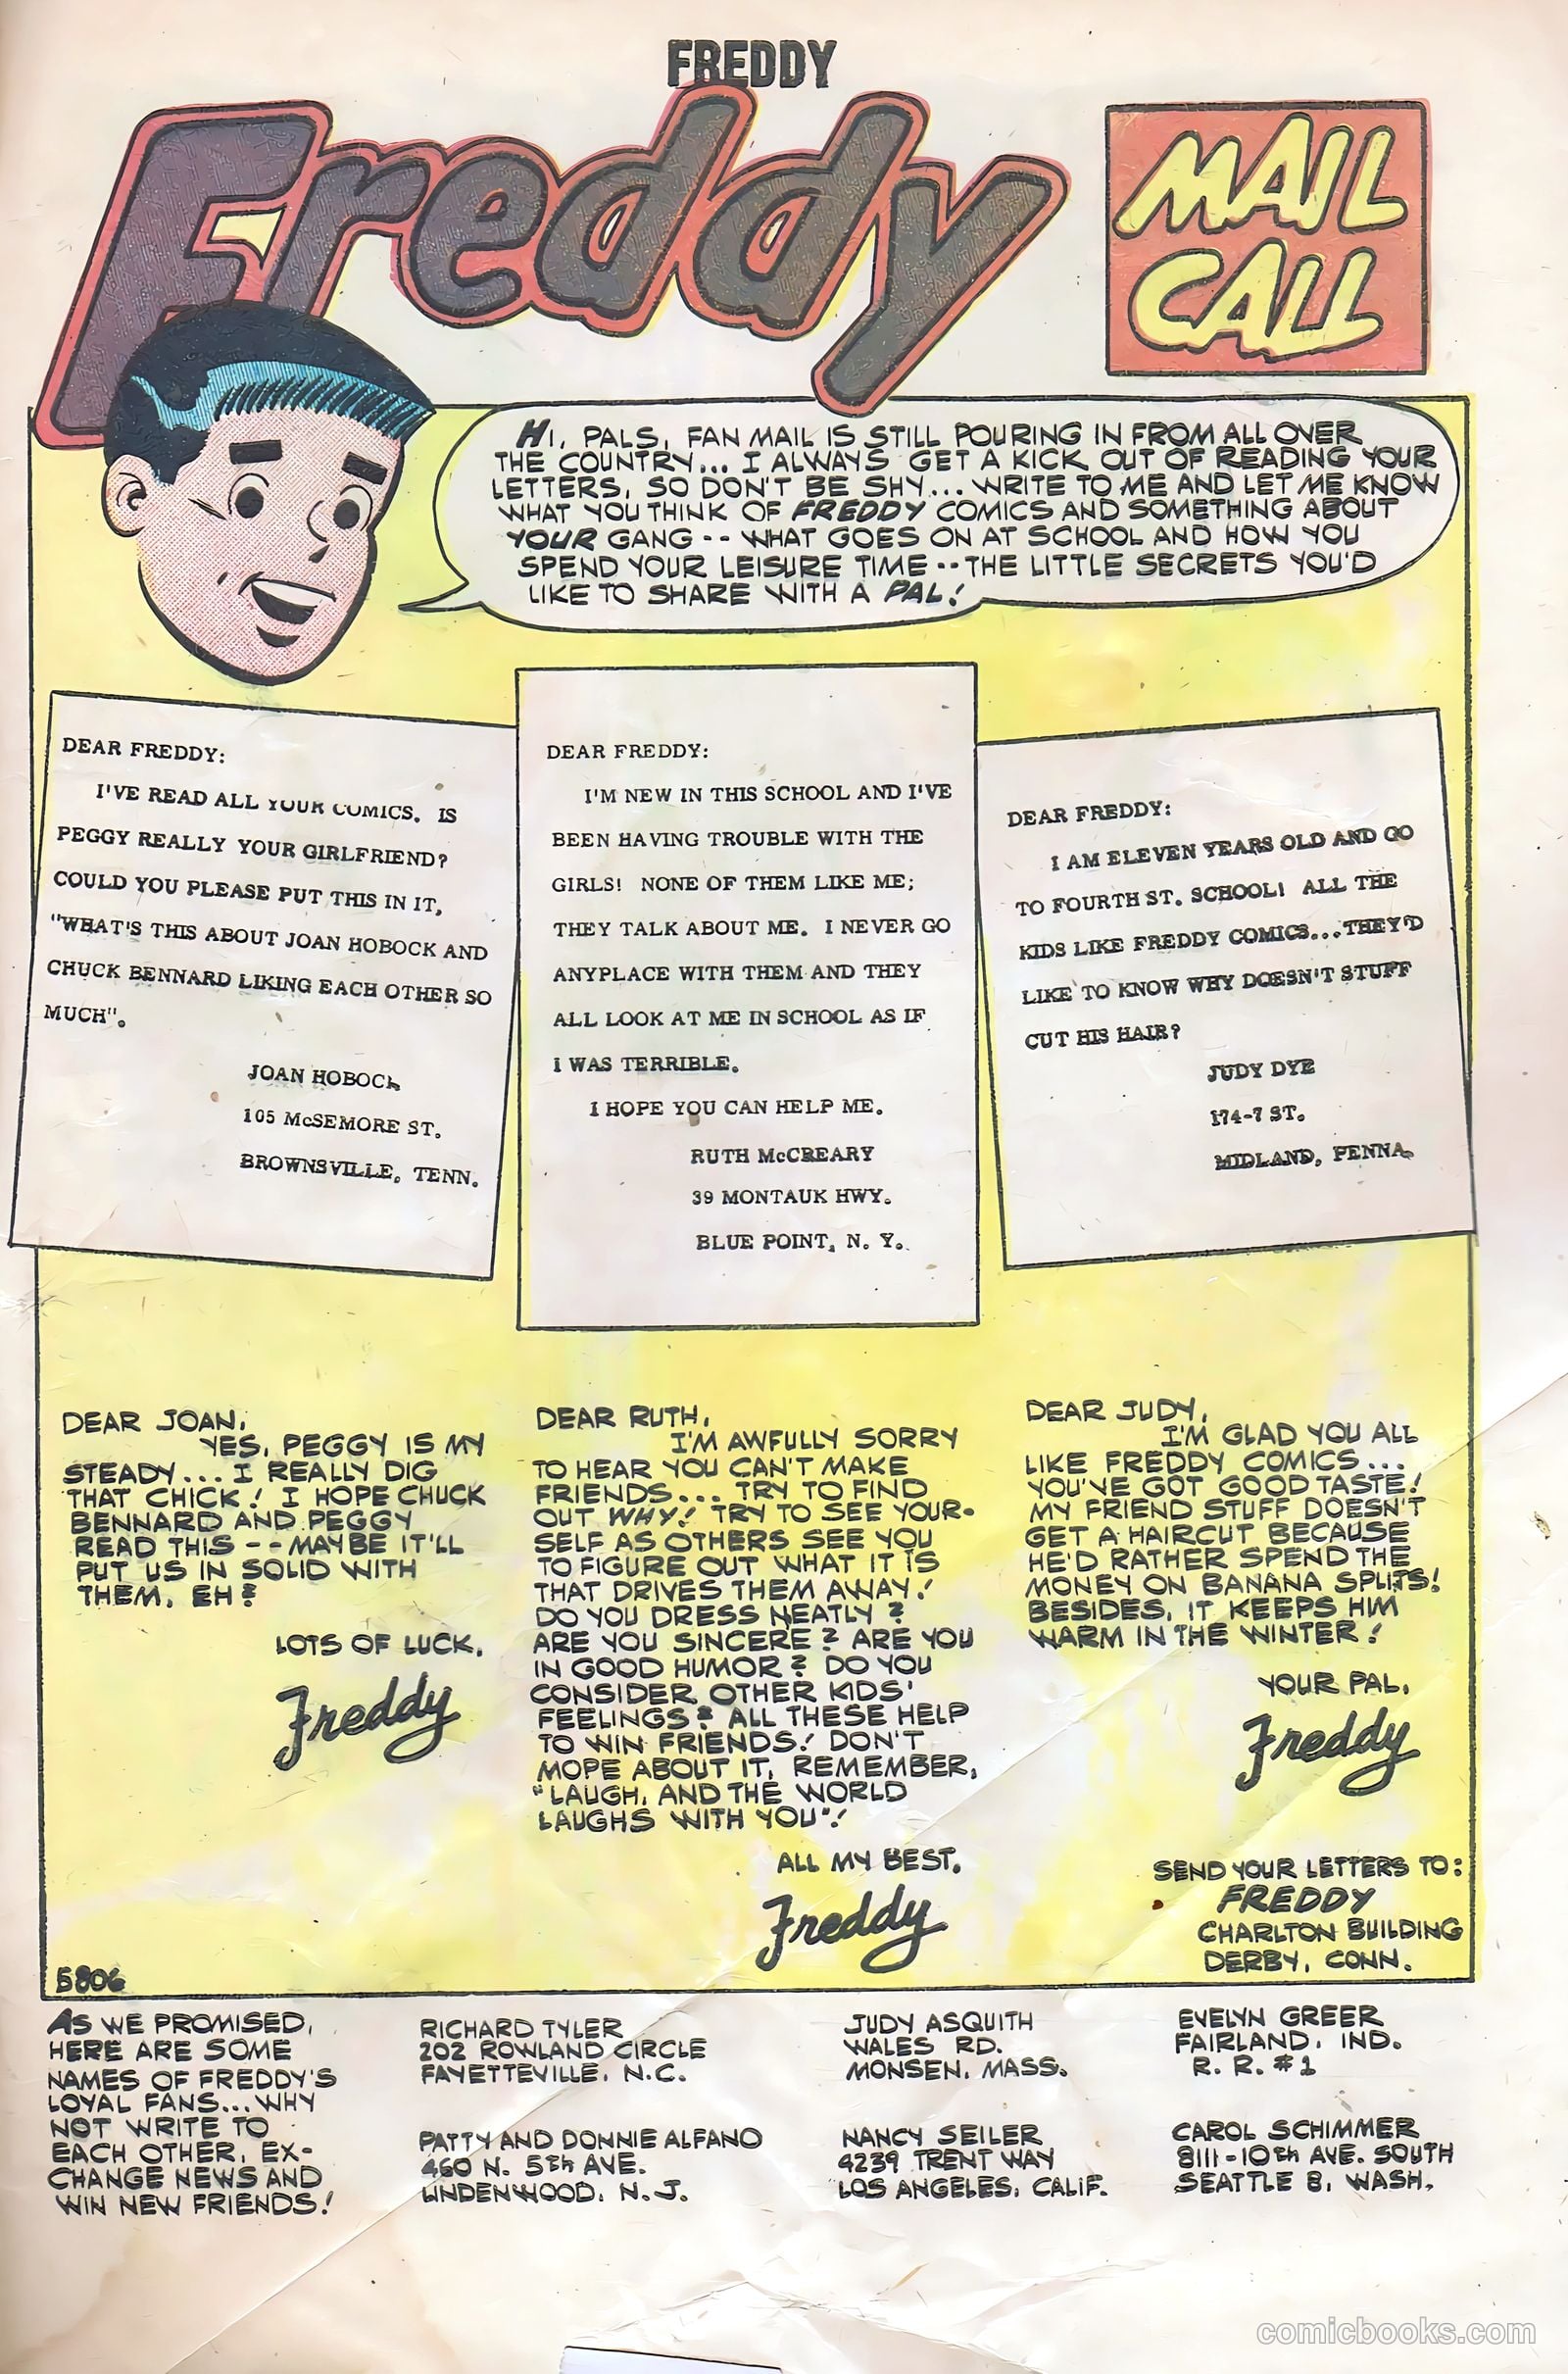 FREDDY
Freddy
MAIL
CALL
HI, PALS, FAN MAIL IS STILL POURING IN FROM ALL OVER
THE COUNTRY... I ALWAYS GET A KICK OUT OF READING YOUR
LETTERS, SO DON'T BE SHY... WRITE TO ME AND LET ME KNOW
WHAT YOU THINK OF FREDDY COMICS AND SOMETHING ABOUT
YOUR GANG -- WHAT GOES ON AT SCHOOL AND HOW YOU
SPEND YOUR LEISURE TIME -- THE LITTLE SECRETS YOU'D
LIKE TO SHARE WITH A PAL!
DEAR FREDDY:
I'VE READ ALL YOUR COMICS. IS
PEGGY REALLY YOUR GIRLFRIEND?
COULD YOU PLEASE PUT THIS IN IT,
"WHAT'S THIS ABOUT JOAN HOBOCK AND
CHUCK BENNARD LIKING EACH OTHER SO
MUCH".
JOAN HOBOCK
105 McSEMORE ST.
BROWNSVILLE, TENN.
DEAR FREDDY:
I'M NEW IN THIS SCHOOL AND I'VE
BEEN HAVING TROUBLE WITH THE
GIRLS! NONE OF THEM LIKE ME;
THEY TALK ABOUT ME. I NEVER GO
ANYPLACE WITH THEM AND THEY
ALL LOOK AT ME IN SCHOOL AS IF
I WAS TERRIBLE.
I HOPE YOU CAN HELP ME.
RUTH McCREARY
39 MONTAUK HWY.
BLUE POINT, N. Y.
DEAR FREDDY:
I AM ELEVEN YEARS OLD AND GO
TO FOURTH ST. SCHOOL! ALL THE
KIDS LIKE FREDDY COMICS...THEY'D
LIKE TO KNOW WHY DOESN'T STUFF
CUT HIS HAIR?
JUDY DYE
174-7 ST.
MIDLAND, PENNA.
DEAR JOAN,
YES, PEGGY IS MY
STEADY... I REALLY DIG
THAT CHICK! I HOPE CHUCK
BENNARD AND PEGGY
READ THIS -- MAYBE IT'LL
PUT US IN SOLID WITH
THEM, EH?
LOTS OF LUCK,
Freddy
DEAR RUTH,
I'M AWFULLY SORRY
TO HEAR YOU CAN'T MAKE
FRIENDS... TRY TO FIND
OUT WHY! TRY TO SEE YOUR-
SELF AS OTHERS SEE YOU
TO FIGURE OUT WHAT IT IS
THAT DRIVES THEM AWAY!
DO YOU DRESS NEATLY?
ARE YOU SINCERE? ARE YOU
IN GOOD HUMOR? DO YOU
CONSIDER OTHER KIDS'
FEELINGS? ALL THESE HELP
TO WIN FRIENDS! DON'T
MOPE ABOUT IT, REMEMBER,
"LAUGH, AND THE WORLD
LAUGHS WITH YOU"!
ALL MY BEST,
Freddy
DEAR JUDY,
I'M GLAD YOU ALL
LIKE FREDDY COMICS...
YOU'VE GOT GOOD TASTE!
MY FRIEND STUFF DOESN'T
GET A HAIRCUT BECAUSE
HE'D RATHER SPEND THE
MONEY ON BANANA SPLITS!
BESIDES, IT KEEPS HIM
WARM IN THE WINTER!
YOUR PAL,
Freddy
SEND YOUR LETTERS TO:
FREDDY
CHARLTON BUILDING
DERBY, CONN.
5806
AS WE PROMISED,
HERE ARE SOME
NAMES OF FREDDY'S
LOYAL FANS... WHY
NOT WRITE TO
EACH OTHER, EX-
CHANGE NEWS AND
WIN NEW FRIENDS!
RICHARD TYLER
202 ROWLAND CIRCLE
FAYETTEVILLE, N.C.
PATTY AND DONNIE ALFANO
460 N. 5th AVE.
LINDENWOOD, N.J.
JUDY ASQUITH
WALES RD.
MONSEN, MASS.
NANCY SEILER
4239 TRENT WAY
LOS ANGELES, CALIF.
EVELYN GREER
FAIRLAND, IND.
R. R. #1
CAROL SCHIMMER
8111-10th AVE. SOUTH
SEATTLE 8, WASH.
comicbooks.com